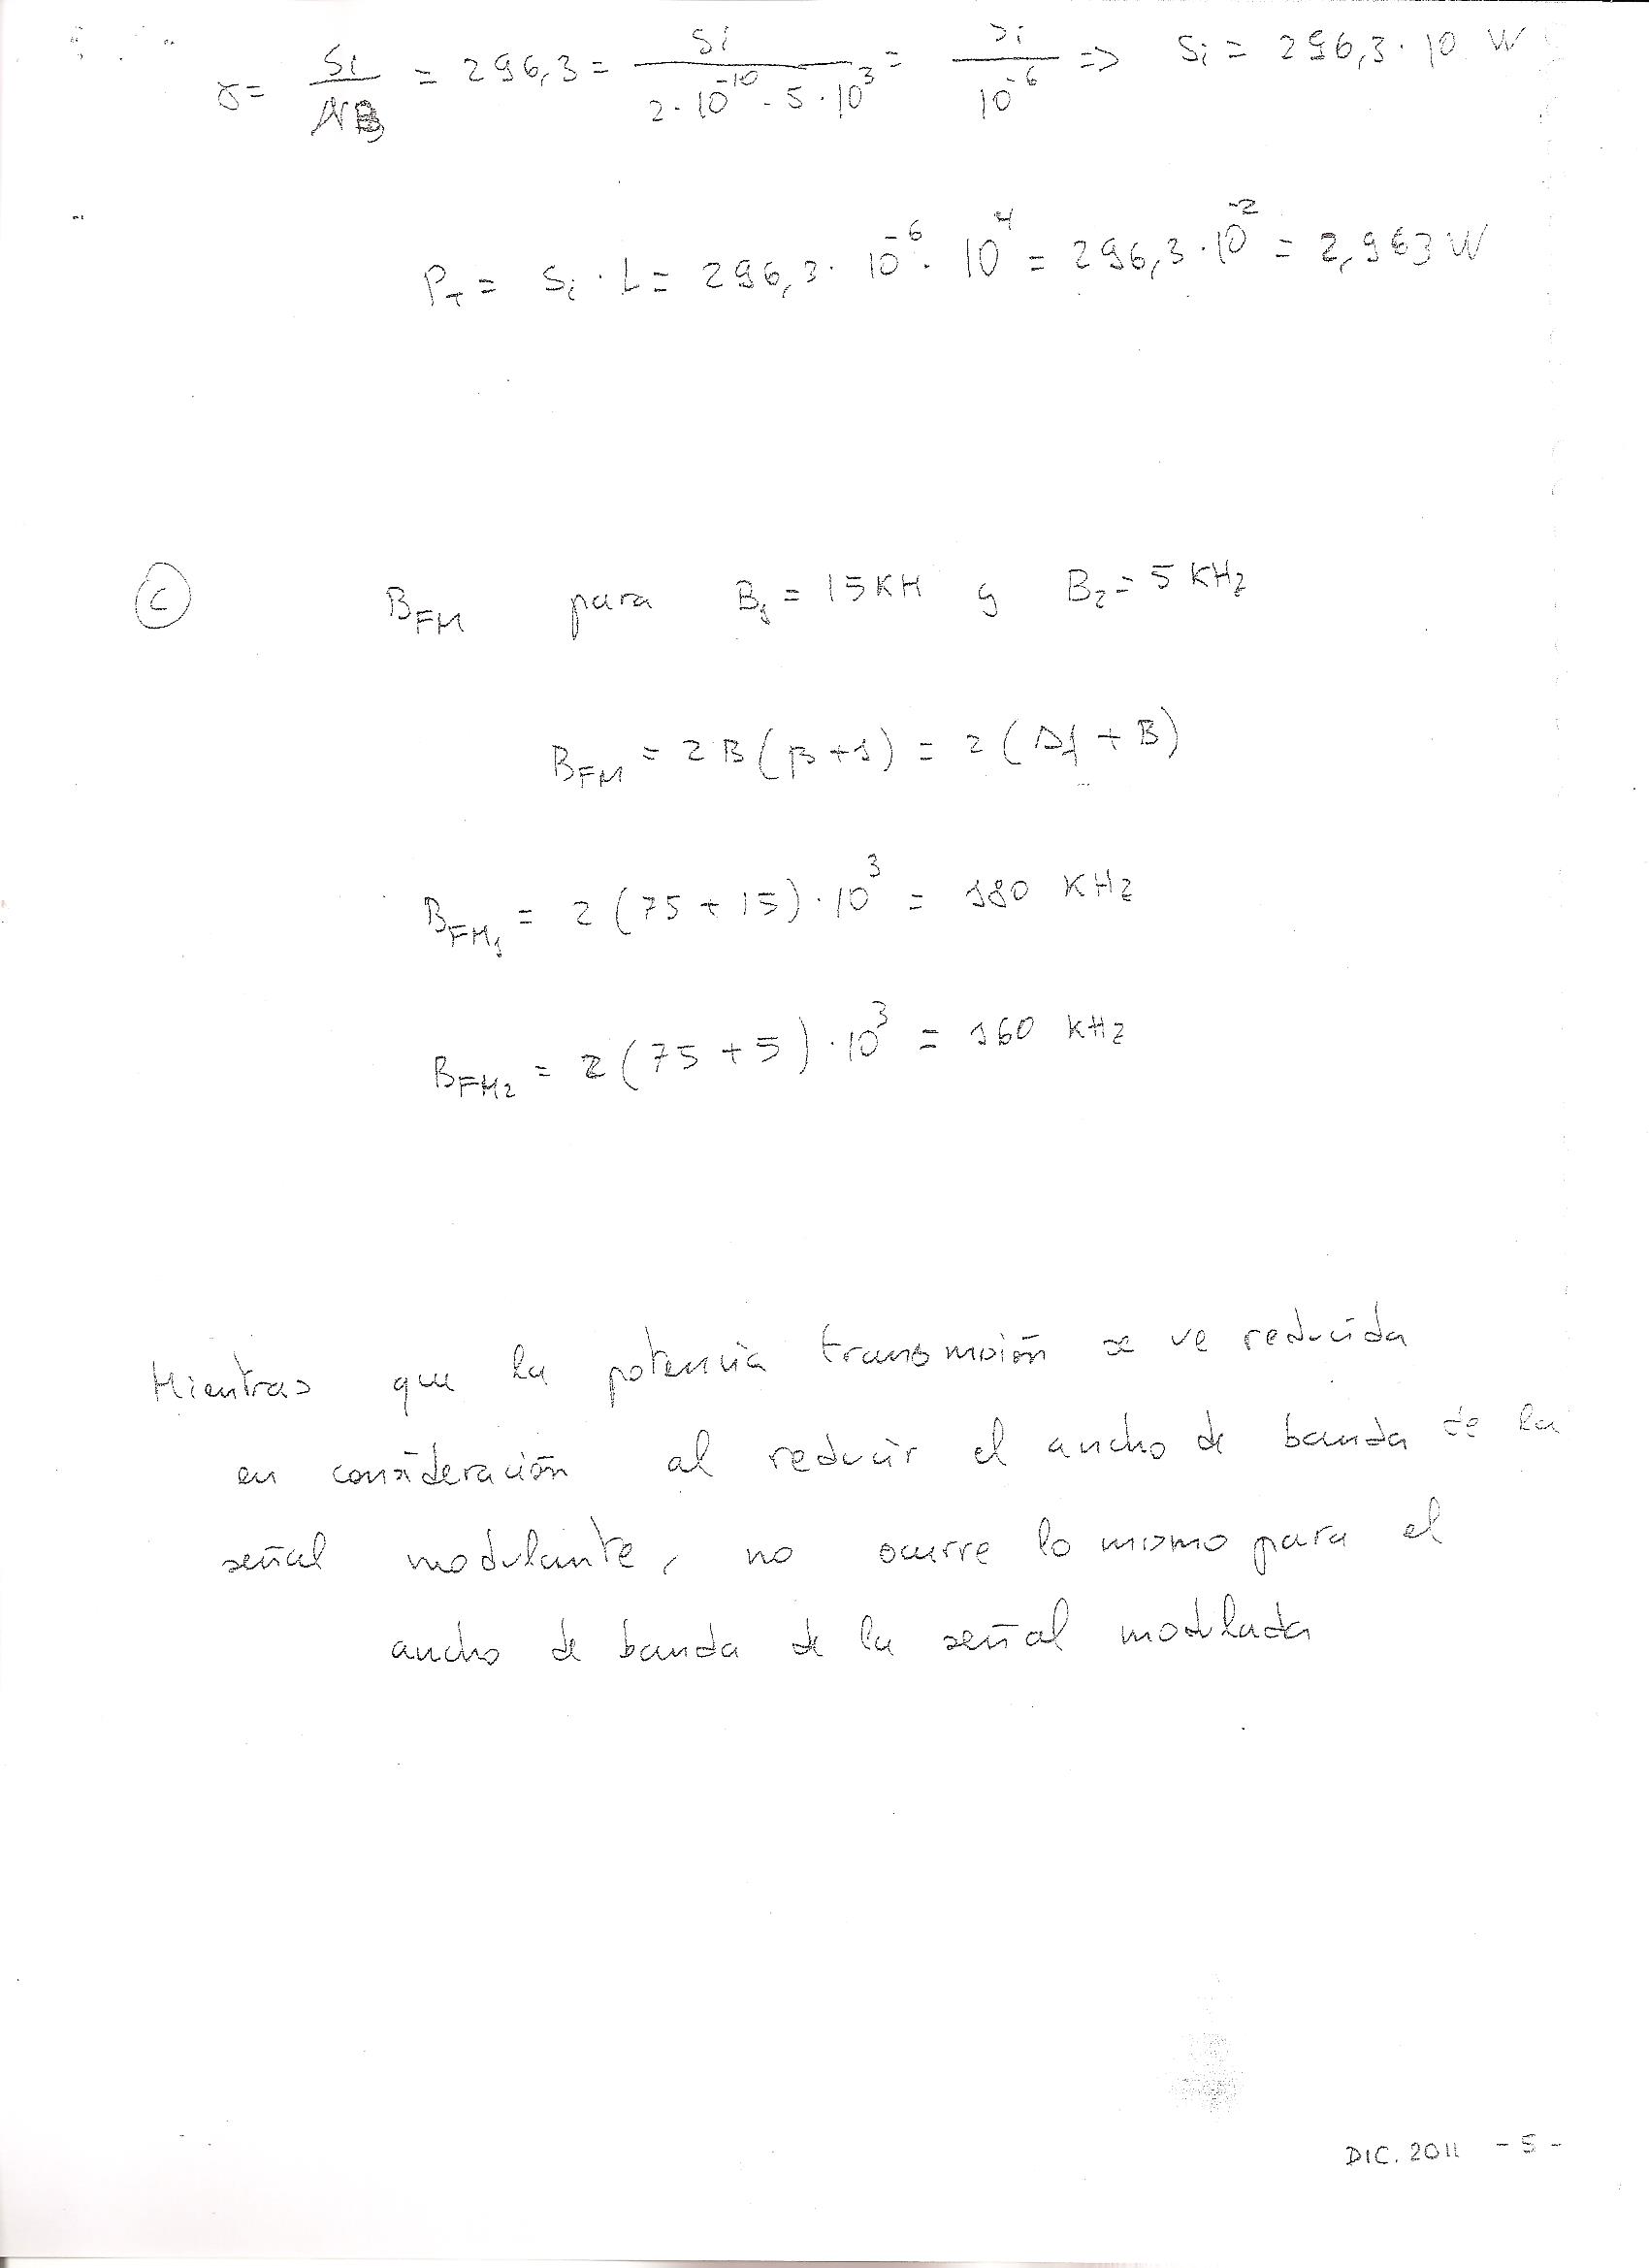 γ = Si / NB = 296,3 = Si / 2·10^-10 · 5·10^3 = Si / 10^-6 => Si = 296,3·10 W
P_T = Si · L = 296,3 · 10^-6 · 10^4 = 296,3·10^-2 = 2,963 W
C B_FM para B_1 = 15 KH y B_2 = 5 KHz
B_FM = 2B(β+1) = 2(Δf + B)
B_FM1 = 2(75+15)·10^3 = 180 KHz
B_FM2 = 2(75+5)·10^3 = 160 KHz
Mientras que la potencia transmisión se ve reducida
en consideración al reducir el ancho de banda de la
señal modulante, no ocurre lo mismo para el
ancho de banda de la señal modulada
DIC. 2011 - 5 -